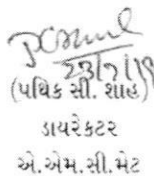 23/7/19
(પથિક સી. શાહ)
ડાયરેકટર
એ.એમ.સી.મેટ